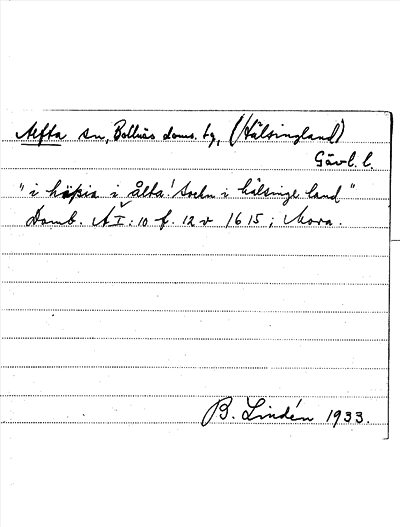 Alfta sn, Bollnäs doms. tg, (Hälsingland)
Gävl. l.
"i häsia i ålta! Sochn i hälsinge land"
Domb. ÄI:10 f. 12 v 1615; Mora.
B. Lindén 1933.